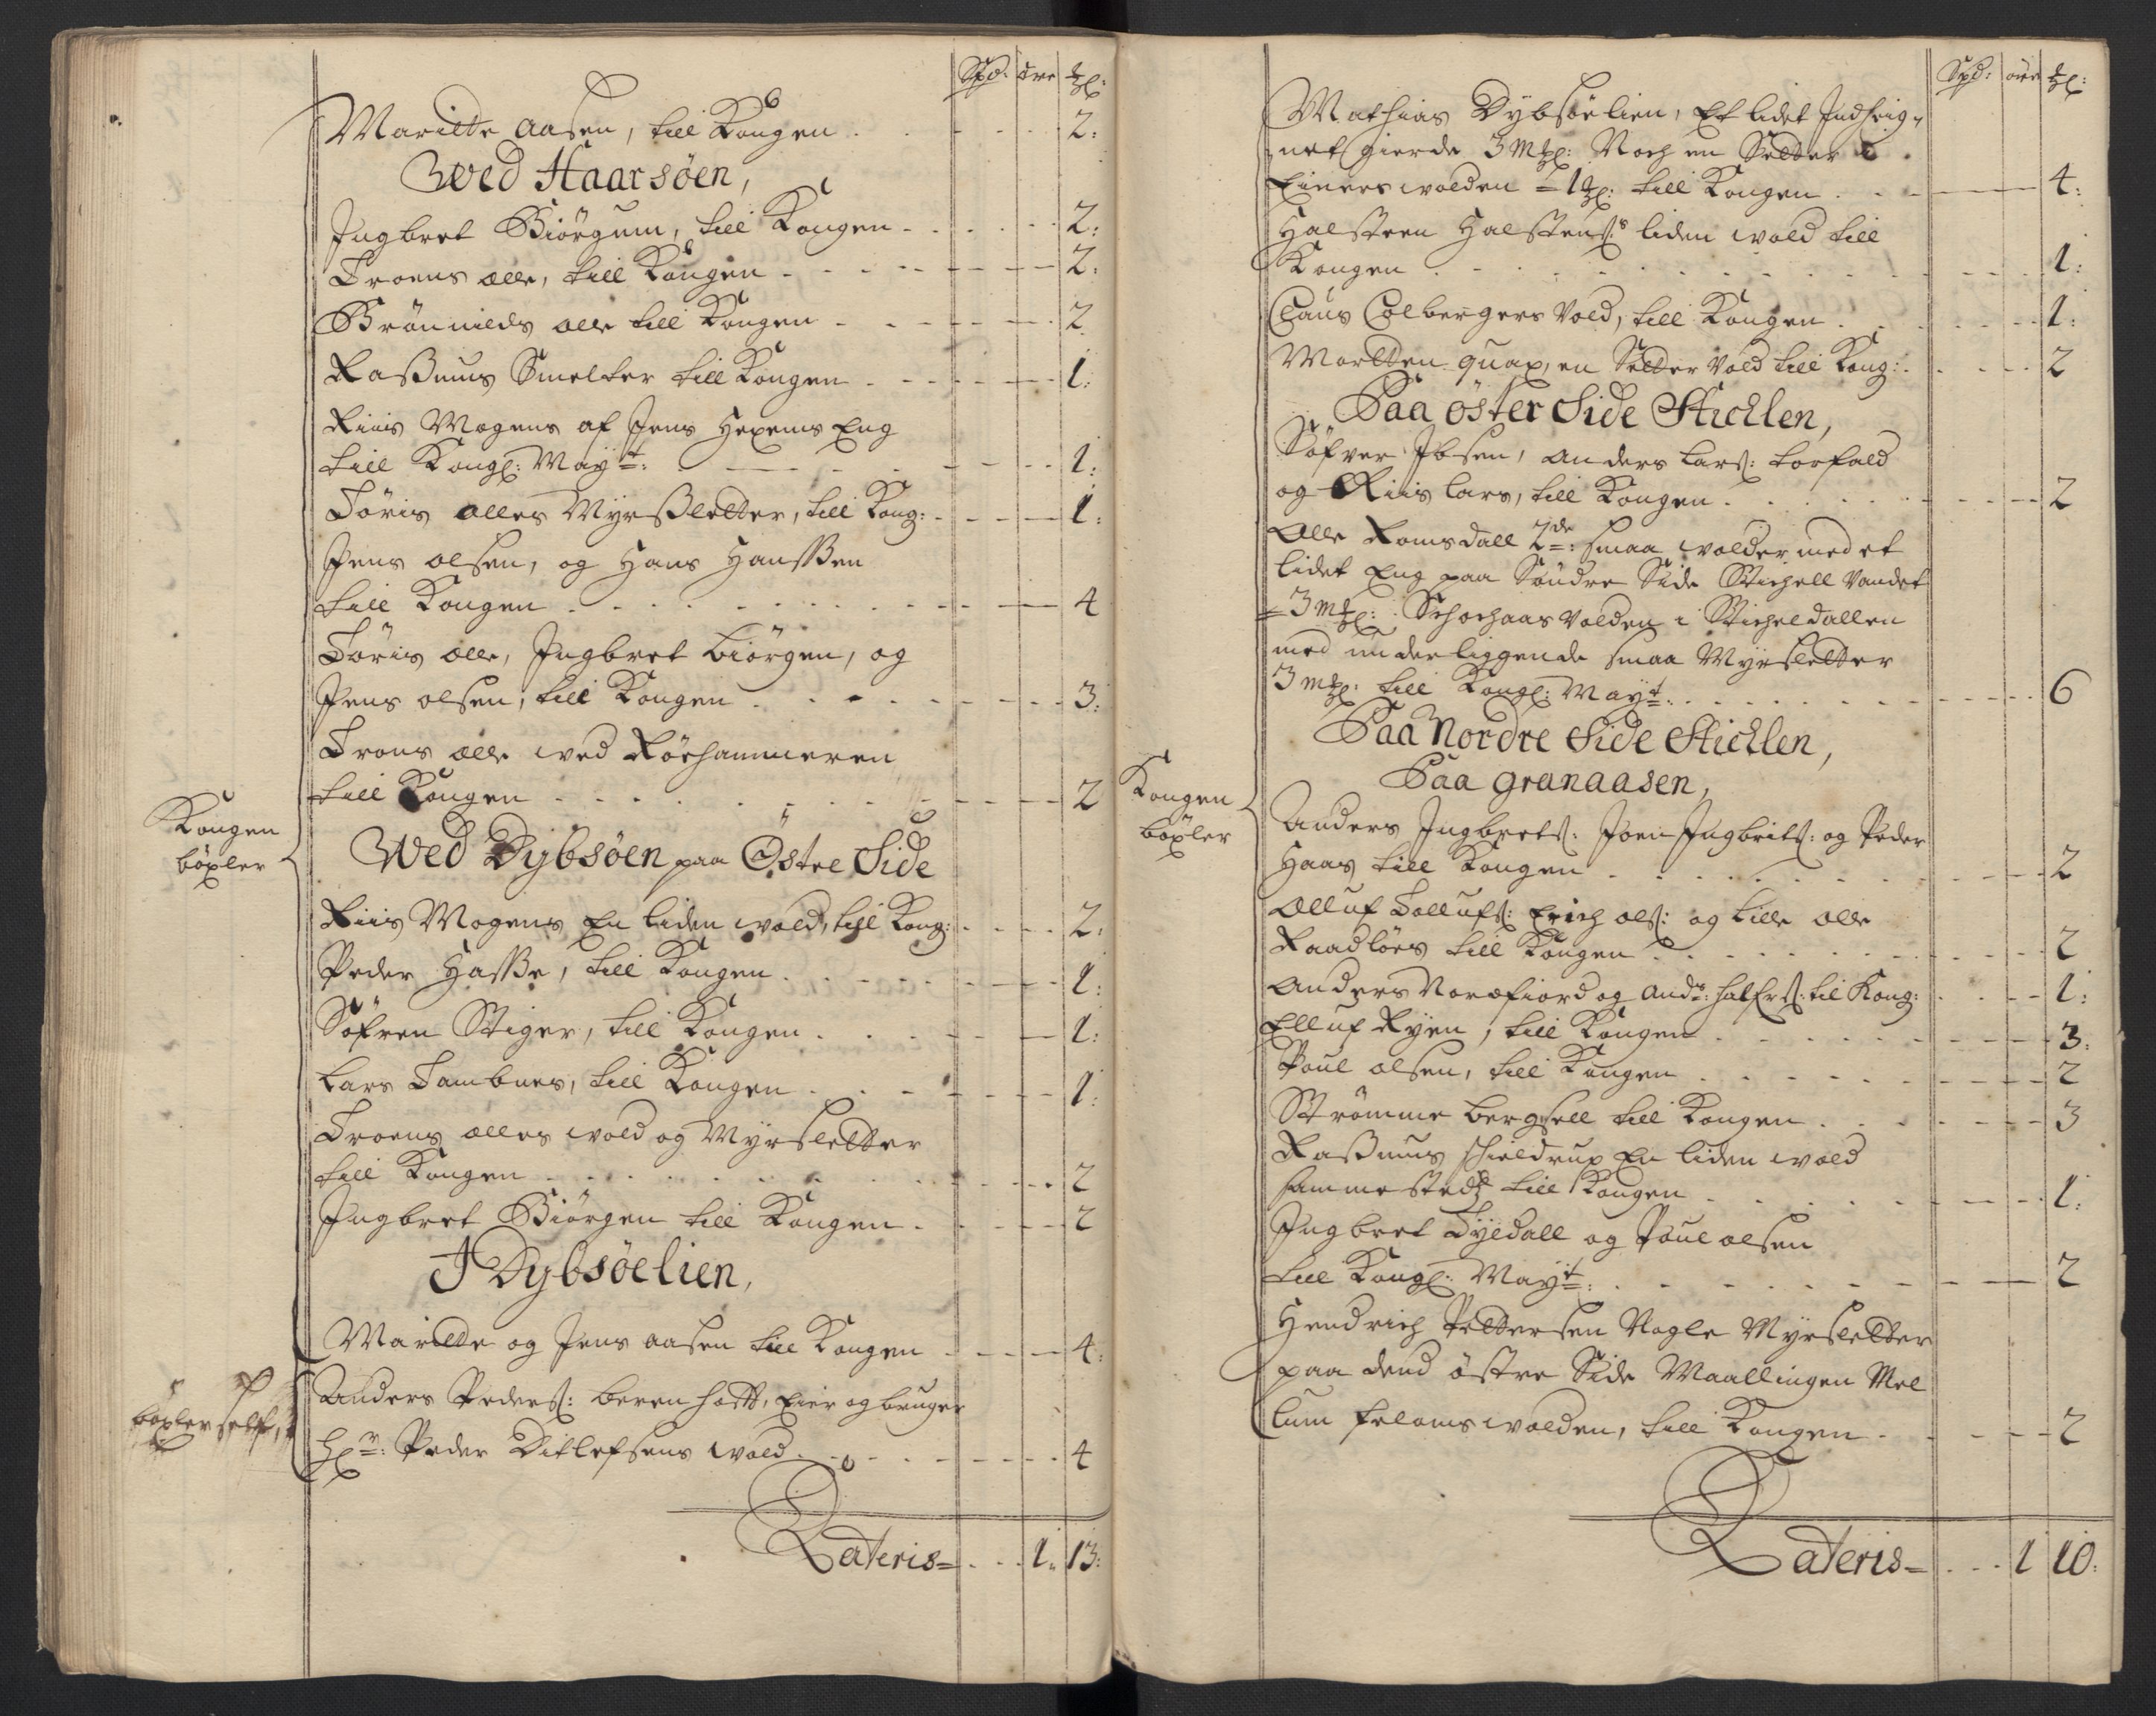 Spd: öre
Maritte Aasen, till Kongen 2:
Wed Haarsøen,
Ingbret Biörgum, till Kongen 2:
Troens olle, till Kongen 2:
Brönnilds olle till Kongen 2
Raßmus Smelter till Kongen 1:
Riiis Mogens af Jens Hexems Eng
till Kongl: Mayt: 1:
Töris olles Myrßletter, till Kong: 1:
Jens olsen, og Hans Hanßen
till Kongen 4
Töriis olle, Ingbret Biörgen, og
Jens olsen, till Kongen 3:
Trons olle wed Röehammeren
till Kongen 2
Kongen
böxler
Wed Dybsøen paa Östre Side
Riiis Mogens En liden wold, till Kong: 2:
Peder Haße, till Kongen 1:
Söfren Stiger, till Kongen 1:
Lars Tambues, till Kongen 1:
Troens olles wold og Myrsletter
till Kongen 2
Ingbret Biörgen till Kongen 2
I Dybsøelien,
Maritte og Jens Aasen till Kongen 4:
böxler self,
Anders Peders: Berenhott, Eier og bruger
Hr: Peder Ditlefsens wold 4
Lateris 1: 13:
Spd: öre
Mathias Dybsöelien, Et lidet Indheig-
net gierde 3 Mkl: Noch en Setter i
Einerswolden 1 kl: till Kongen 4:
Halsteen Halstens: liden wold till
Kongen 1:
Claus Colbergers Vold, till Kongen 1:
Mortten quax, en Setter Vold till Kong: 2
Paa öster Side Stichlen,
Söfver Ibsen, Anders Lars: Torfald
og Riiis Lars, till Kongen 2
Olle Romsdall 2de: smaa wolder med et
lidet Eng paa Söndre Side Stichell Vandet
3 mkl: Schochaas Volden i Sticheldallen
med underliggende smaa Myrsletter
3 mkl: till Kongl: Mayt: 6
Paa Nordre Side Stichlen,
Paa Granaasen,
Kongen
böxler
Anders Ingbrets: Joen Ingbrits: og Peder
Haas till Kongen 2
Olluf Tollufs: Erich ols: og Lille olle
Raadlöes till Kongen 2
Anders Noræfiord og Ands: Halfrs: til Kong: 1:
Elluf Ryen, till Kongen 3:
Poul olsen, till Kongen 2
Strömme Bergsell till Kongen 3
Raßmus Schieldrup En liden wold
sammested till Kongen 1:
Ingbret Dyedall og Poul olsen
till Kongl: Mayt: 2
Hendrich Pettersen Nogle Myrsletter
paa dend östre Side Maallingen Mel
lum Feloms wolden, till Kongen 2
Lateris 1 10: